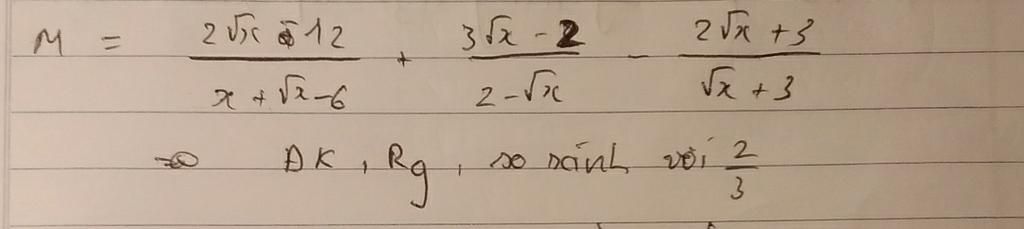 M = (2√x - 12)/(x + √x - 6) + (3√x - 2)/(2 - √x) - (2√x + 3)/(√x + 3)
ĐK, Rg, so sánh với 2/3